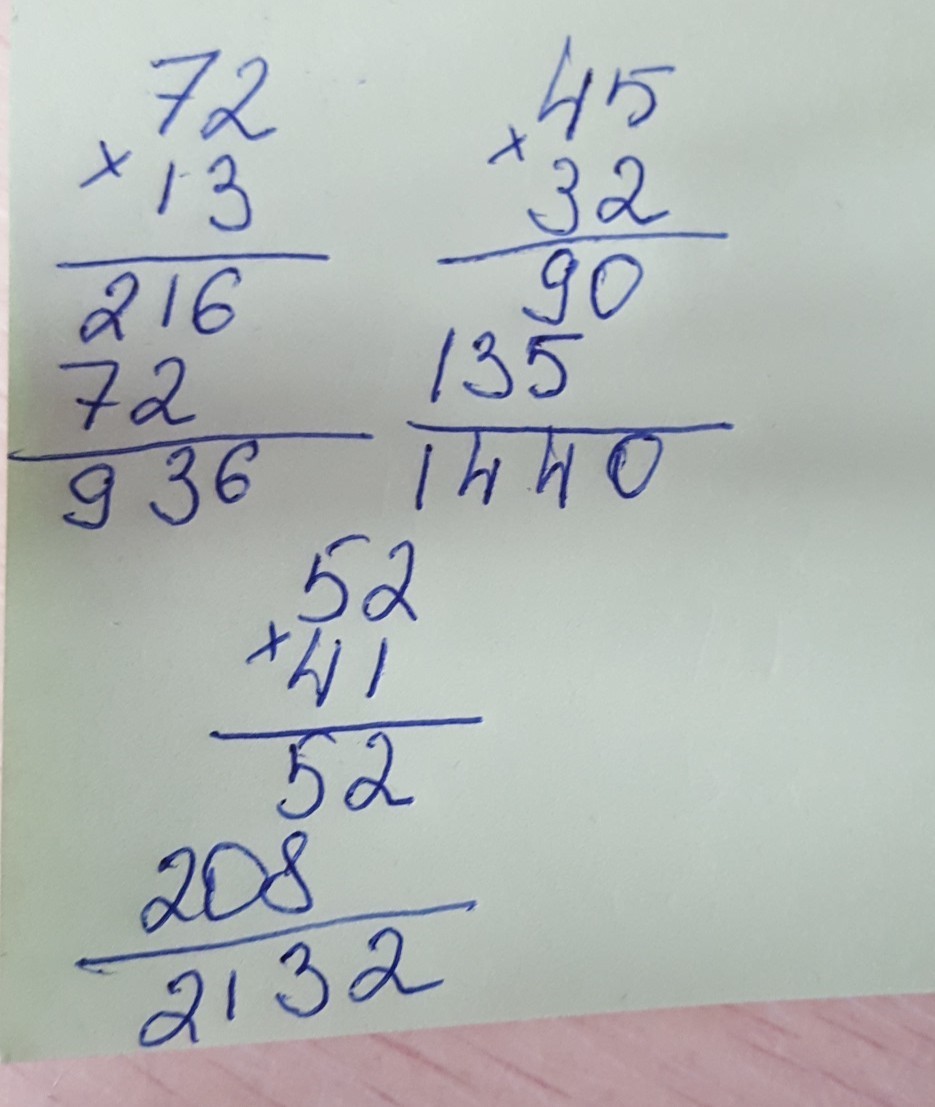 72
× 13
216
72
936
45
× 32
90
135
1440
52
× 41
52
208
2132